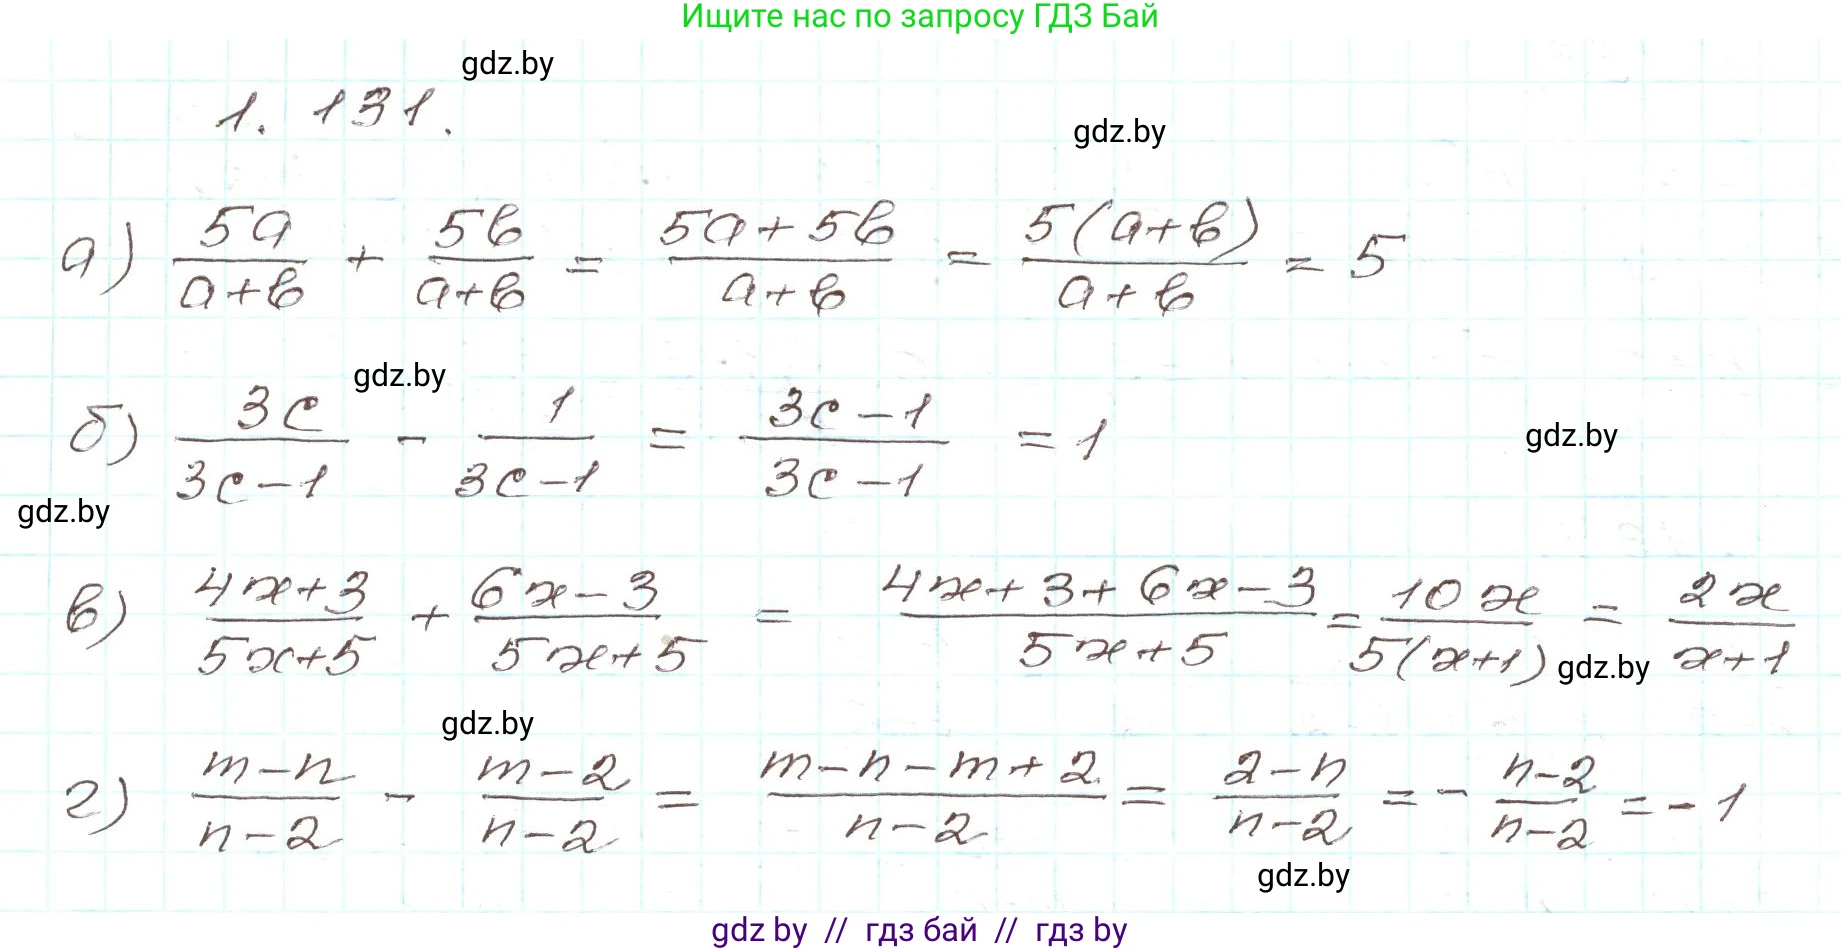 Ищите нас по запросу ГДЗ Бай
gdz.by
1.131.
gdz.by
а) \frac{5a}{a+b} + \frac{5b}{a+b} = \frac{5a+5b}{a+b} = \frac{5(a+b)}{a+b} = 5
gdz.by
б) \frac{3c}{3c-1} - \frac{1}{3c-1} = \frac{3c-1}{3c-1} = 1
gdz.by
gdz.by
в) \frac{4x+3}{5x+5} + \frac{6x-3}{5x+5} = \frac{4x+3+6x-3}{5x+5} = \frac{10x}{5(x+1)} = \frac{2x}{x+1}
gdz.by
gdz.by
г) \frac{m-n}{n-2} - \frac{m-2}{n-2} = \frac{m-n-m+2}{n-2} = \frac{2-n}{n-2} = -\frac{n-2}{n-2} = -1
gdz.by
gdz by // гдз бай // гдз by